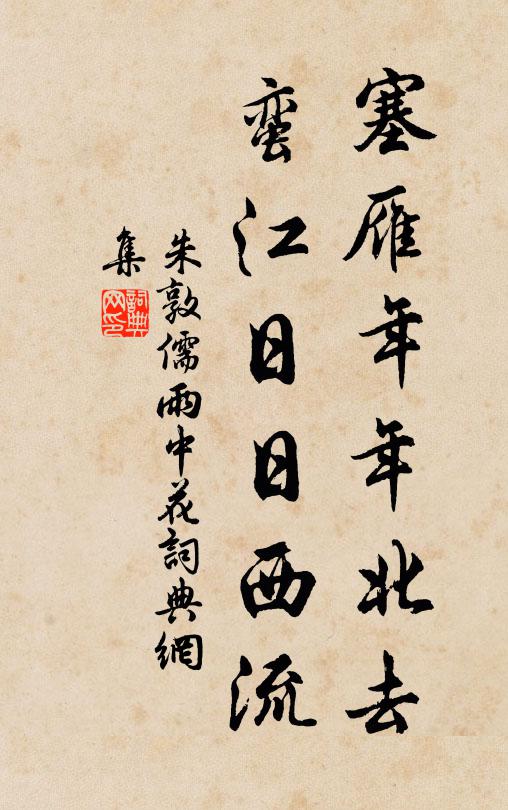 塞雁年年北去
蛮江日日西流
朱敦儒雨中花詞典網
集
詞典网印